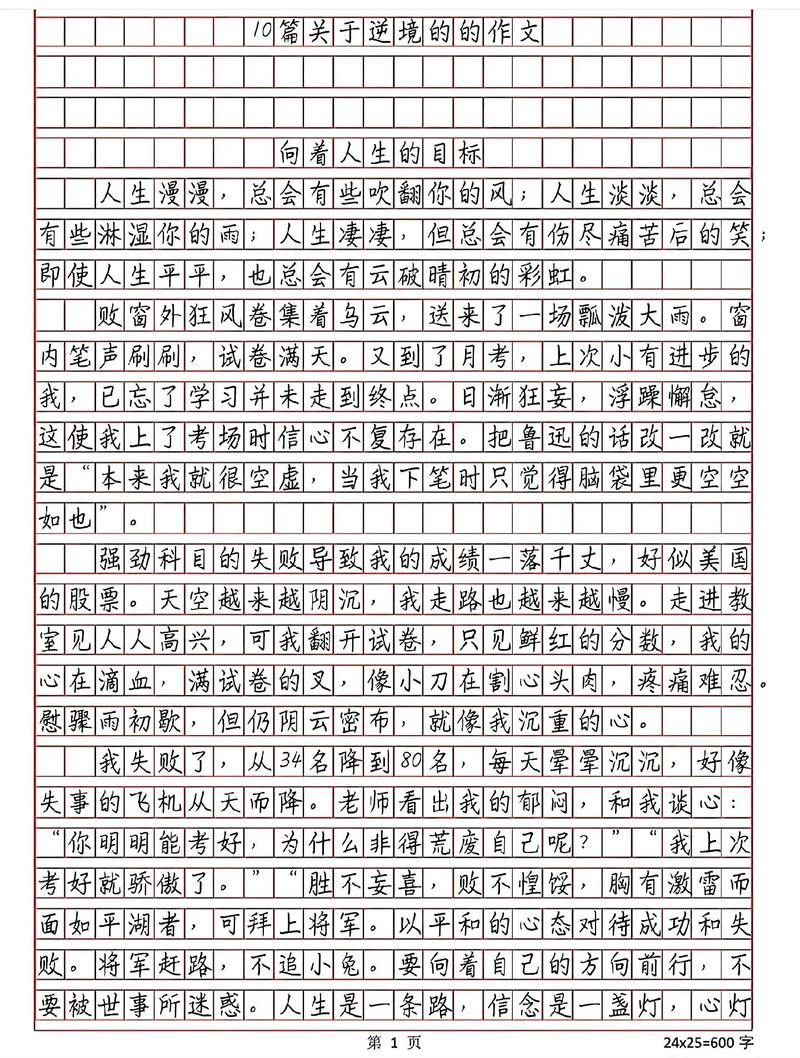 10篇关于逆境的的作文
向着人生的目标
人生漫漫，总会有些吹翻你的风；人生淡淡，总会
有些淋湿你的雨；人生凄凄，但总会有伤尽痛苦后的笑；
即使人生平平，也总会有云破晴初的彩虹。
败窗外狂风卷集着乌云，送来了一场瓢泼大雨。窗
内笔声刷刷，试卷满天。又到了月考，上次小有进步的
我，已忘了学习并未走到终点。日渐狂妄，浮躁懈怠，
这使我上了考场时信心不复存在。把鲁迅的话改一改就
是“本来我就很空虚，当我下笔时只觉得脑袋里更空空
如也”。
强劲科目的失败导致我的成绩一落千丈，好似美国
的股票。天空越来越阴沉，我走路也越来越慢。走进教
室见人人高兴，可我翻开试卷，只见鲜红的分数，我的
心在滴血，满试卷的叉，像小刀在割心头肉，疼痛难忍。
慰骤雨初歇，但仍阴云密布，就像我沉重的心。
我失败了，从34名降到80名，每天晕晕沉沉，好像
失事的飞机从天而降。老师看出我的郁闷，和我谈心：
“你明明能考好，为什么非得荒废自己呢？”“我上次
考好就骄傲了。”“胜不妄喜，败不惶馁，胸有激雷而
面如平湖者，可拜上将军。以平和的心态对待成功和失
败。将军赶路，不追小兔。要向着自己的方向前行，不
要被世事所迷惑。人生是一条路，信念是一盏灯，心灯
第 1 页
24x25=600 字